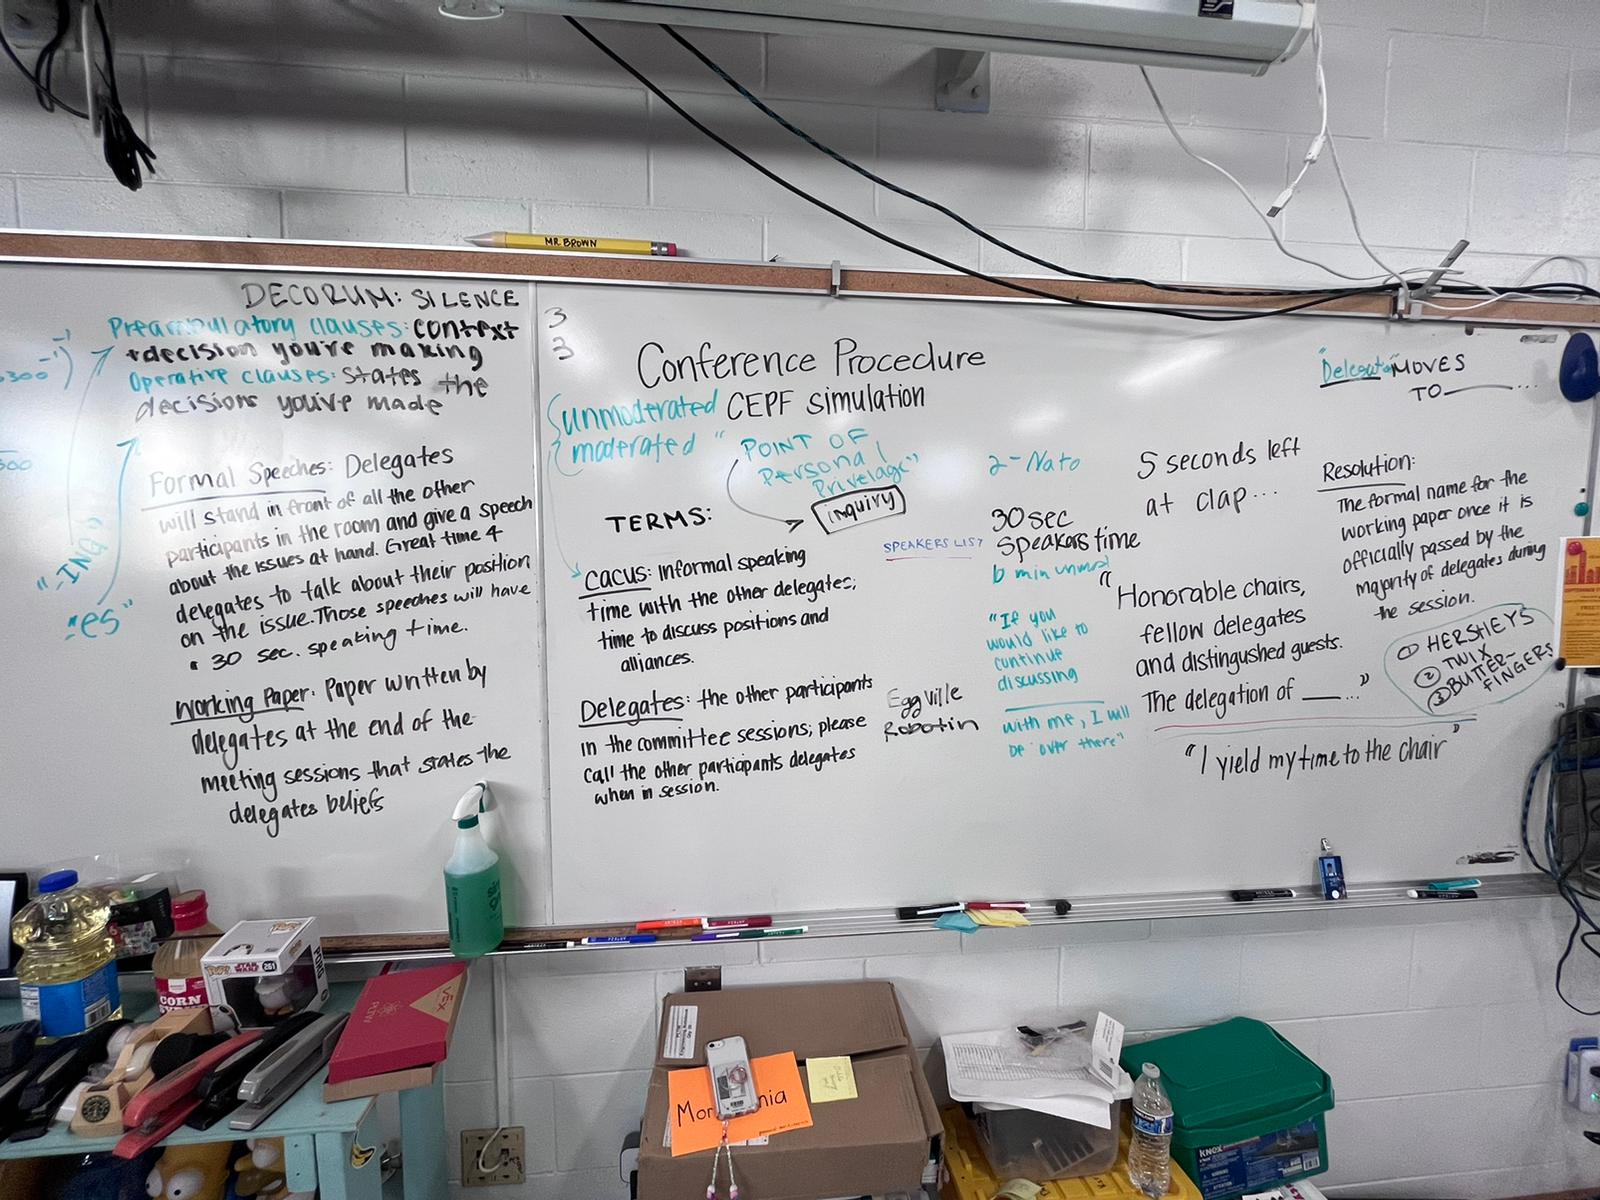 MR. BROWN
DECORUM: SILENCE
Preambulatory clauses: context
+decision you're making
Operative clauses: states the
decisions you've made
300
"-ING"
"-es"
Formal Speeches: Delegates
will stand in front of all the other
participants in the room and give a speech
about the issues at hand. Great time 4
delegates to talk about their position
on the issue. Those speeches will have
• 30 sec. speaking time.
Working Paper: Paper written by
delegates at the end of the
meeting sessions that states the
delegates beliefs
3
3
Conference Procedure
CEPF simulation
unmoderated
moderated
"POINT OF
Personal
Privelage"
inquiry
TERMS:
Cacus: Informal speaking
time with the other delegates;
time to discuss positions and
alliances.
Delegates: the other participants
in the committee sessions; please
call the other participants delegates
when in session.
SPEAKERS LIST
Eggville
Robotin
2-Nato
30 sec
speakers time
"If you
would like to
continue
discussing
with me, I will
be over there"
5 seconds left
at clap...
"Honorable chairs,
fellow delegates
and distingushed guests.
The delegation of ___..."
"I yield my time to the chair"
MOVES
TO______...
Resolution:
The formal name for the
working paper once it is
officially passed by the
majority of delegates during
the session.
① HERSHEYS
② TWIX
③ BUTTER-
FINGERS
CORN
STAR WARS
261
PORG
Mor nia
K'NEX